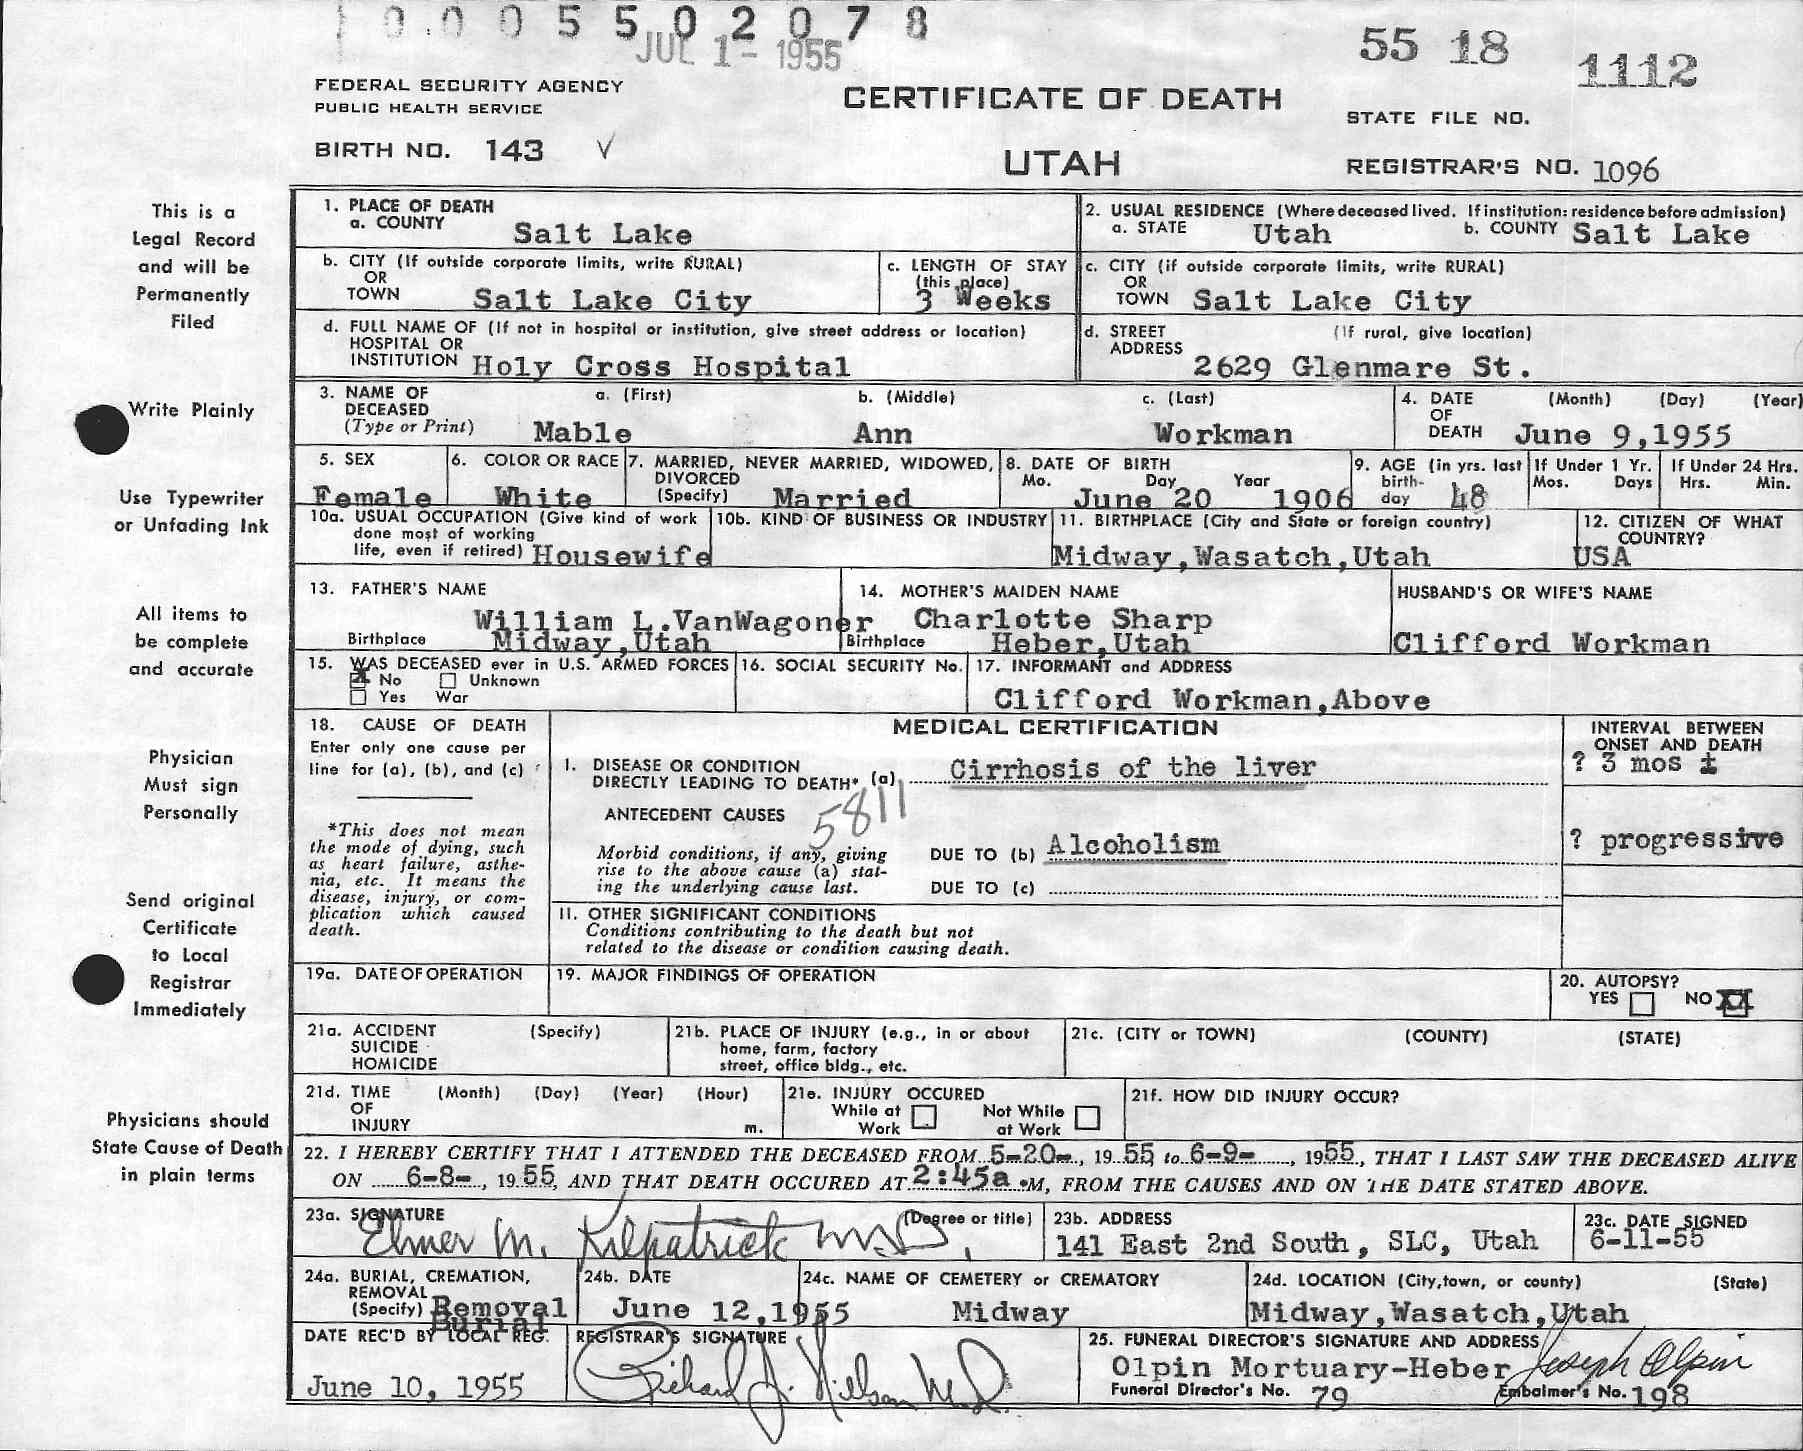 1 0 0 0 5 5 0 2 0 7 8
JUL 1- 1955
55 18 1112
FEDERAL SECURITY AGENCY
PUBLIC HEALTH SERVICE
CERTIFICATE OF DEATH
STATE FILE NO.
BIRTH NO. 143 V
UTAH
REGISTRAR'S NO. 1096
This is a
Legal Record
and will be
Permanently
Filed
Write Plainly
Use Typewriter
or Unfading Ink
All items to
be complete
and accurate
Physician
Must sign
Personally
Send original
Certificate
to Local
Registrar
Immediately
Physicians should
State Cause of Death
in plain terms
1. PLACE OF DEATH
a. COUNTY Salt Lake
2. USUAL RESIDENCE (Where deceased lived. If institution: residence before admission)
a. STATE Utah b. COUNTY Salt Lake
b. CITY (If outside corporate limits, write RURAL)
OR
TOWN Salt Lake City
c. LENGTH OF STAY
(this place)
3 Weeks
c. CITY (if outside corporate limits, write RURAL)
OR
TOWN Salt Lake City
d. FULL NAME OF (If not in hospital or institution, give street address or location)
HOSPITAL OR
INSTITUTION Holy Cross Hospital
d. STREET (If rural, give location)
ADDRESS
2629 Glenmare St.
3. NAME OF
DECEASED
(Type or Print)
a. (First) b. (Middle) c. (Last)
Mable Ann Workman
4. DATE (Month) (Day) (Year)
OF
DEATH June 9,1955
5. SEX
Female
6. COLOR OR RACE
White
7. MARRIED, NEVER MARRIED, WIDOWED,
DIVORCED
(Specify) Married
8. DATE OF BIRTH
Mo. Day Year
June 20 1906
9. AGE (in yrs. last
birth-
day 48
If Under 1 Yr.
Mos. Days
If Under 24 Hrs.
Hrs. Min.
10a. USUAL OCCUPATION (Give kind of work
done most of working
life, even if retired) Housewife
10b. KIND OF BUSINESS OR INDUSTRY
11. BIRTHPLACE (City and State or foreign country)
Midway,Wasatch,Utah
12. CITIZEN OF WHAT
COUNTRY?
USA
13. FATHER'S NAME
William L.VanWagoner
Birthplace Midway,Utah
14. MOTHER'S MAIDEN NAME
Charlotte Sharp
Birthplace Heber,Utah
HUSBAND'S OR WIFE'S NAME
Clifford Workman
15. WAS DECEASED ever in U.S. ARMED FORCES
No Unknown
Yes War
16. SOCIAL SECURITY No.
17. INFORMANT and ADDRESS
Clifford Workman,Above
18. CAUSE OF DEATH
Enter only one cause per
line for (a), (b), and (c)
*This does not mean
the mode of dying, such
as heart failure, asthe-
nia, etc. It means the
disease, injury, or com-
plication which caused
death.
MEDICAL CERTIFICATION
I. DISEASE OR CONDITION
DIRECTLY LEADING TO DEATH* (a) Cirrhosis of the liver
ANTECEDENT CAUSES 5811
Morbid conditions, if any, giving
rise to the above cause (a) stat-
ing the underlying cause last.
DUE TO (b) Alcoholism
DUE TO (c)
II. OTHER SIGNIFICANT CONDITIONS
Conditions contributing to the death but not
related to the disease or condition causing death.
INTERVAL BETWEEN
ONSET AND DEATH
? 3 mos ±
? progressive
19a. DATE OF OPERATION
19. MAJOR FINDINGS OF OPERATION
20. AUTOPSY?
YES NO XX
21a. ACCIDENT (Specify)
SUICIDE
HOMICIDE
21b. PLACE OF INJURY (e.g., in or about
home, farm, factory
street, office bldg., etc.
21c. (CITY or TOWN) (COUNTY) (STATE)
21d. TIME (Month) (Day) (Year) (Hour)
OF
INJURY m.
21e. INJURY OCCURED
While at Not While
Work at Work
21f. HOW DID INJURY OCCUR?
22. I HEREBY CERTIFY THAT I ATTENDED THE DECEASED FROM 5-20-, 1955 to 6-9-, 1955, THAT I LAST SAW THE DECEASED ALIVE
ON 6-8-, 1955, AND THAT DEATH OCCURED AT 2:45a.M, FROM THE CAUSES AND ON THE DATE STATED ABOVE.
23a. SIGNATURE (Degree or title)
Elmer M. Kilpatrick M.D.
23b. ADDRESS
141 East 2nd South, SLC, Utah
23c. DATE SIGNED
6-11-55
24a. BURIAL, CREMATION,
REMOVAL
(Specify) Removal
Burial
24b. DATE
June 12,1955
24c. NAME OF CEMETERY or CREMATORY
Midway
24d. LOCATION (City,town, or county) (State)
Midway,Wasatch,Utah
DATE REC'D BY LOCAL REG.
June 10, 1955
REGISTRAR'S SIGNATURE
Richard J. Nilson M.D.
25. FUNERAL DIRECTOR'S SIGNATURE AND ADDRESS
Olpin Mortuary-Heber Joseph Olpin
Funeral Director's No. 79 Embalmer's No. 198